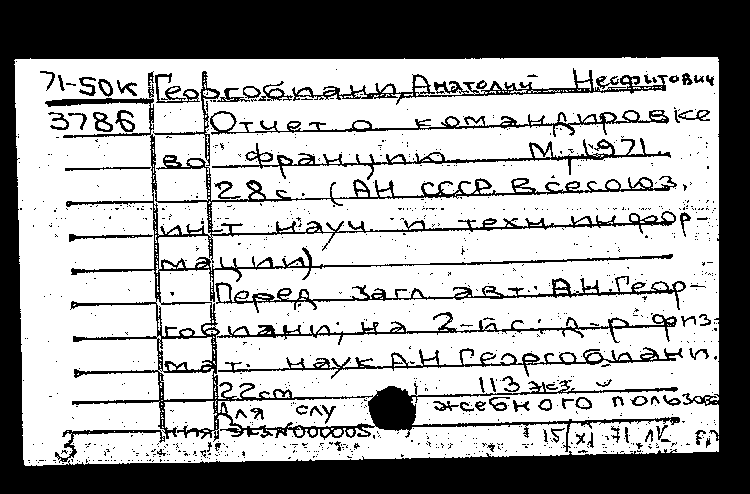 71-50к Георгобиани, Анатолий Неофитович
3786 Отчет о командировке
во Францию. М., 1971.
28 с. (АН СССР. Всесоюз.
ин-т науч. и техн. инфор-
мации)
Перед загл. авт.: А.Н. Геор-
гобиани; на 2-й с.: д-р физ.
мат. наук А.Н. Георгобиани.
22 см 113 экз.
Для служебного пользова
ния Экз N 000005.
3 15/XI-71 ЛК